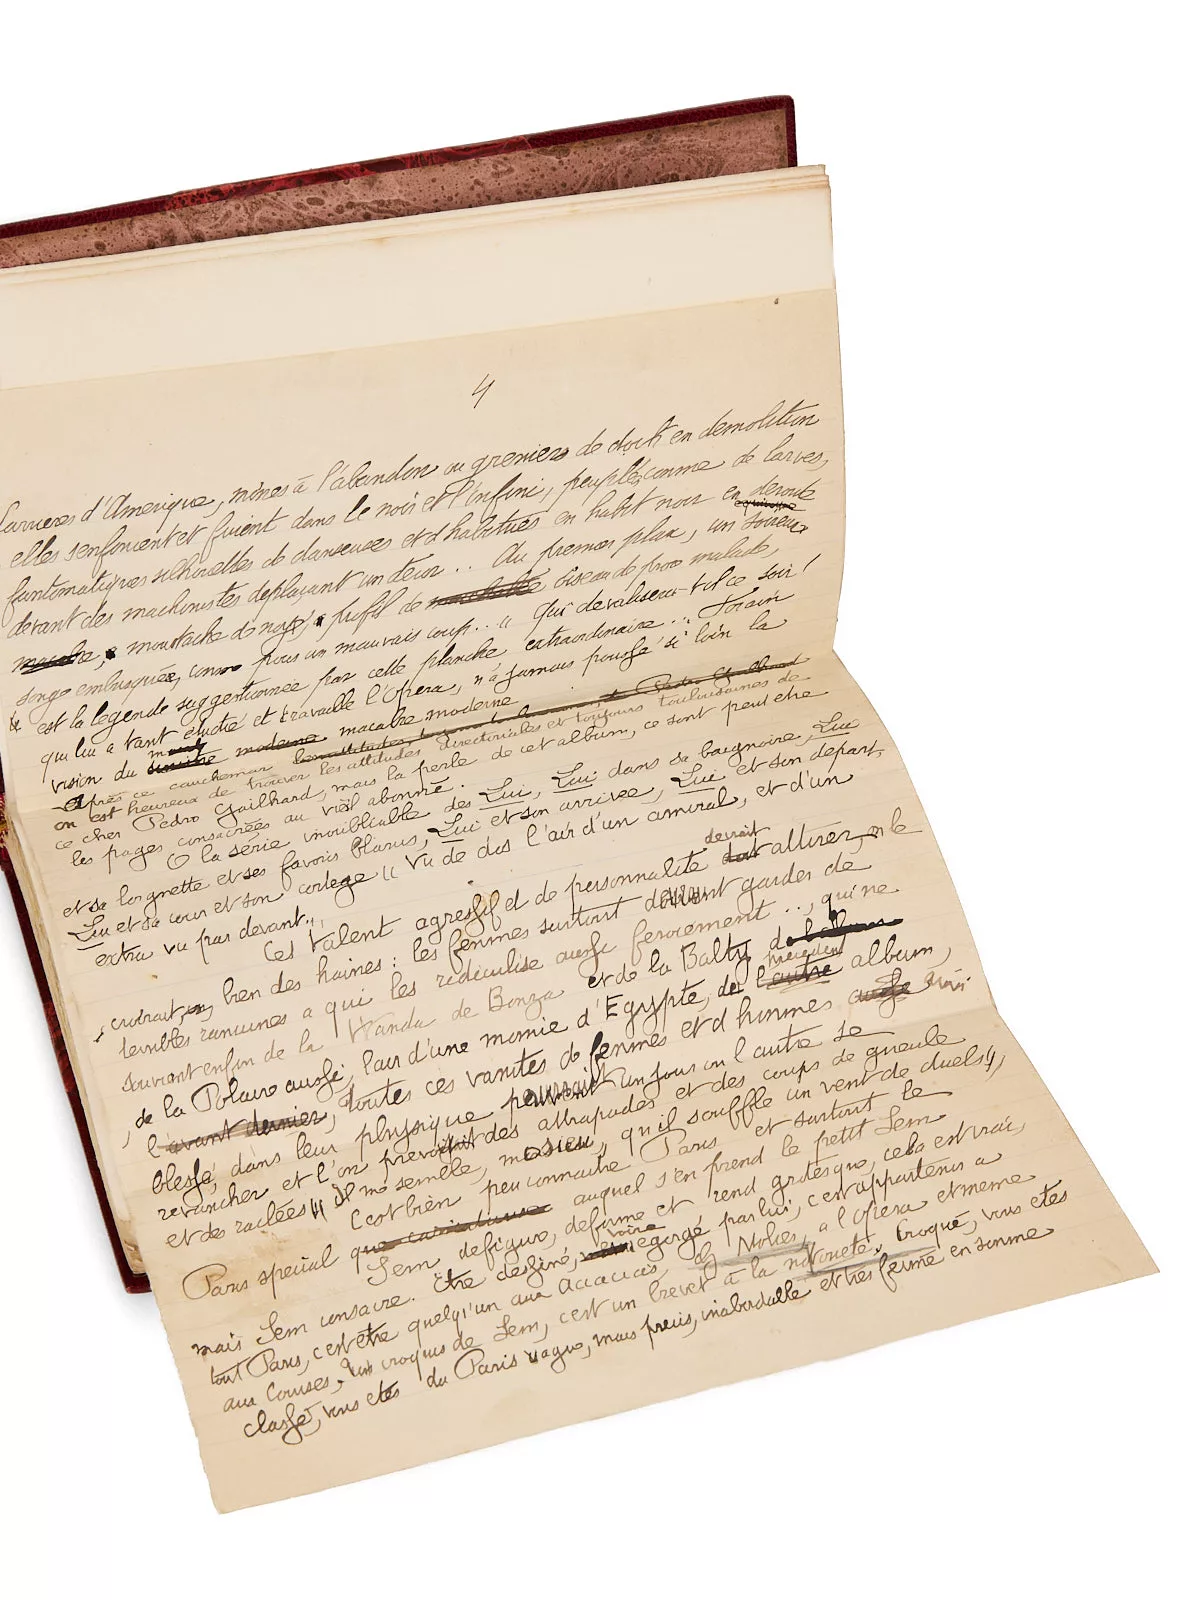 4
Carrières d'Amérique, mines à l'abandon ou greniers de dock en démolition
elles s'enfoncent et fuient dans le noir et l'infini, peuplé, comme de larves,
fantomatiques silhouettes de danseuses et d'habitués en habit noir en déroute
devant des machinistes déplaçant un décor... Au premier plan, un
macabre, moustache de noyé, profil de oiseau de proie malade,
songe embusquée, comme pour un mauvais coup... " Qui dévaliserai-t-il ce soir!
est la légende suggestionnée par cette planche extraordinaire... Forain
qui lui a tant étudié et travaillé l'Opéra, n'a jamais poussé si loin la
vision du moderne macabre moderne
Après ce cauchemar
on est heureux de trouver les attitudes directoriales et toujours toulousaines de
ce cher Pedro Gailhard, mais la perle de cet album, ce sont peut être
les pages consacrées au vieil abonné.
O la série inoubliable des Lui, Lui, Lui dans sa baignoire, Lui
et sa lorgnette et ses favoris blancs, Lui et son arrivée, Lui et son départ,
Lui et sa cour et son cortège " vu de dos l'air d'un amiral, et d'un
extra vu par devant. "
Ces talent agressif et de personnalité devrait attirer, on le
croirait, bien des haines: les femmes surtout doivent garder de
terribles rancunes a qui les ridiculise aussi férocement..., qui ne
souvient enfin de la Wanda de Bonza et de la Balty
de la Polaire aussi, l'air d'une momie d'Egypte, de l'autre précédent album,
l'avant dernier, toutes ces vanités de femmes et d'hommes aussi
blessé, dans leur physique pourrait un jour ou l'autre se
revancher et l'on prevoit des attrapades et des coups de gueule
et des raclées " Il me semble, monsieu, qu'il souffle un vent de duels ",
C'est bien peu connaître Paris et surtout le
Paris spécial que caricature auquel s'en prend le petit Sem
Sem défigure, déforme et rend grotesque, cela est vrai,
mais Sem consacre. Etre dessiné, voire égorgé par lui, c'est appartenir a
tout Paris, c'est être quelqu'un aux Accacias, a l'Opera et même
aux Courses, un croquis de Sem, c'est un brevet à la notoriété, croqué, vous etes
classé, vous etes du Paris vague, mais précis, inabordable et très fermé en somme